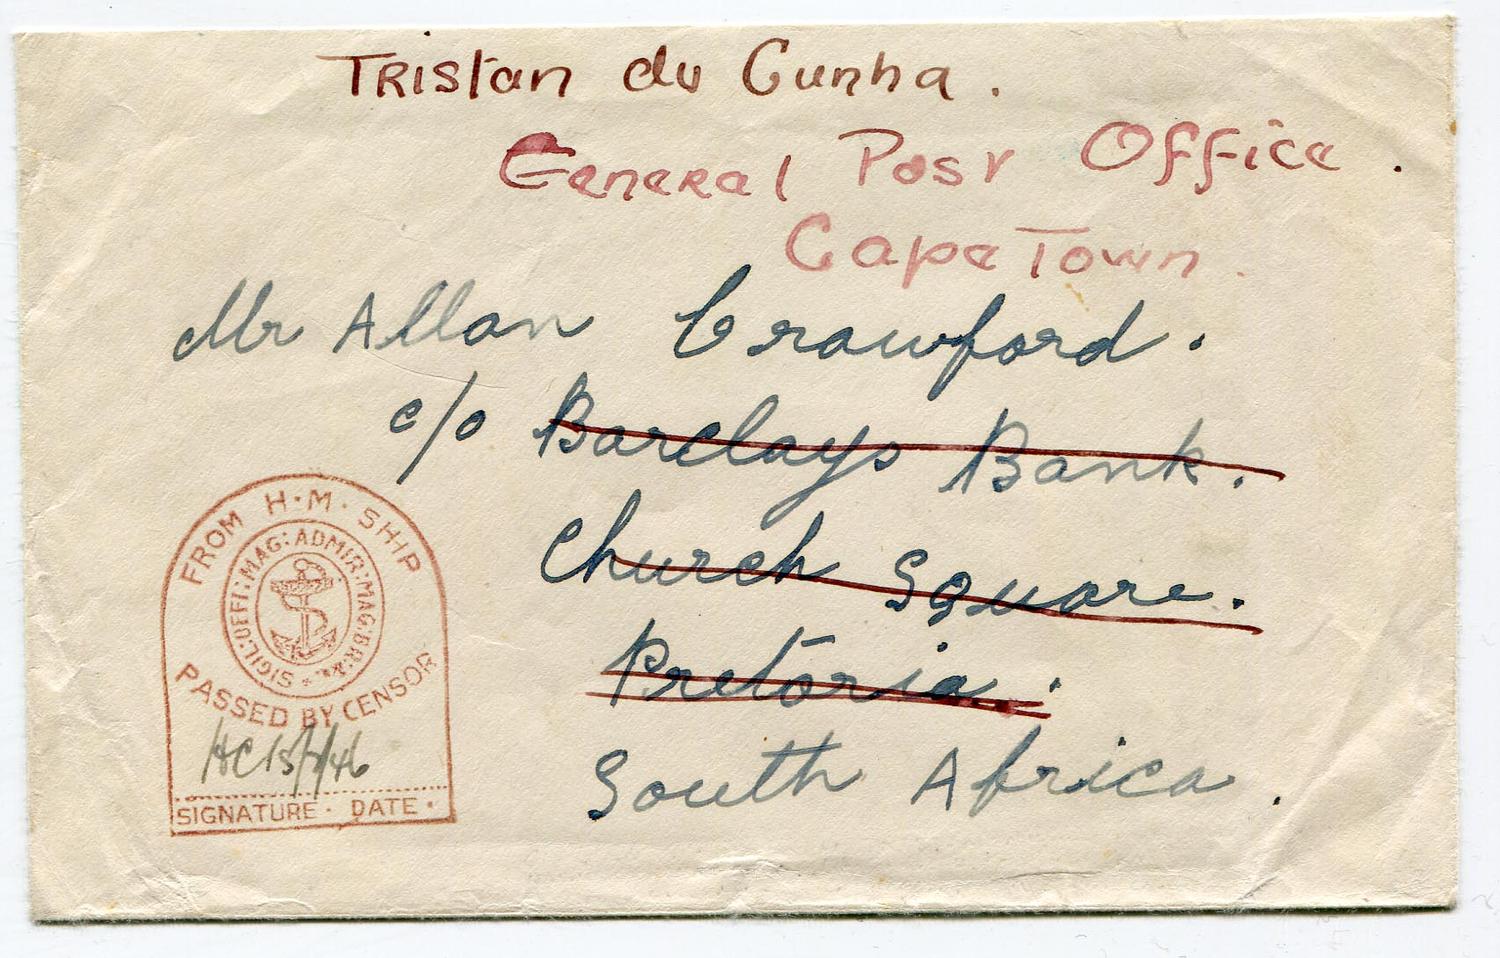 Tristan du Cunha.
General Post Office.
Cape Town.
Mr Allan Crawford.
c/o Barclays Bank.
Church Square.
Pretoria.
South Africa.
FROM H·M· SHIP
SIGIL:OFFI:MAG:ADMIR:MAG:BR:&c.
PASSED BY CENSOR
HC 15/
/46
SIGNATURE · DATE ·